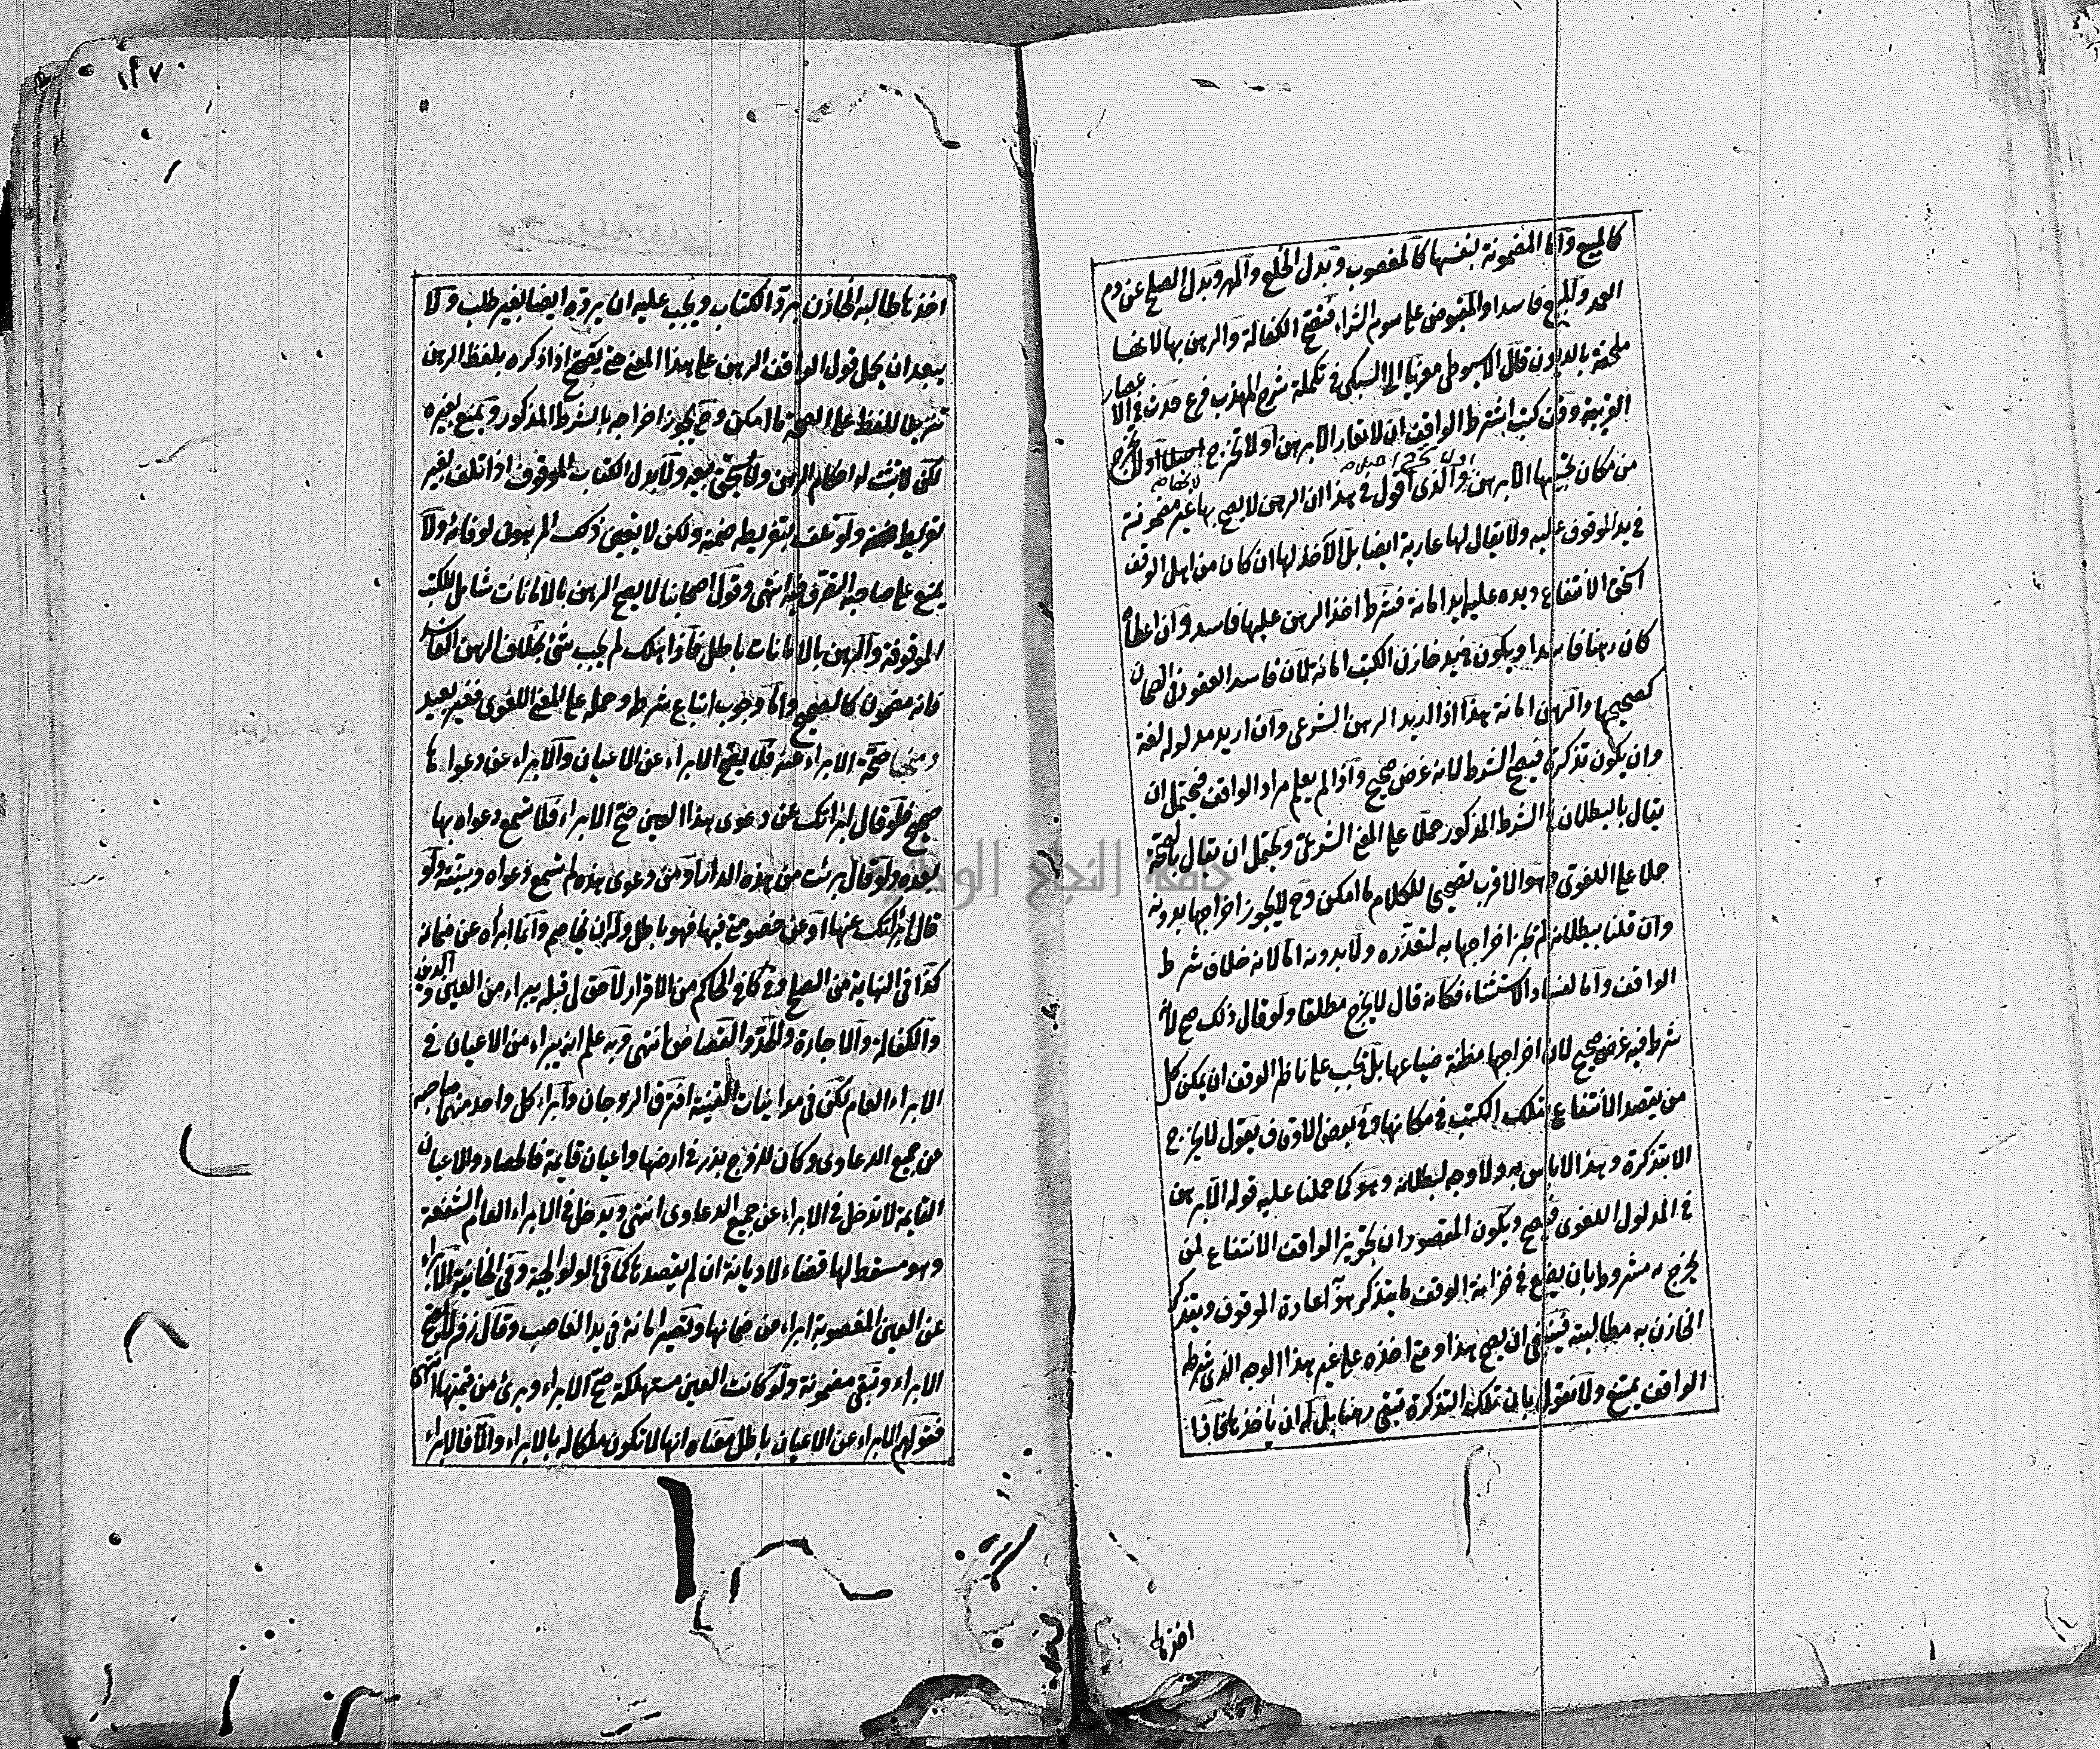 كالمبيع وأما المضمونة بنفسها كالمغصوب وبدل الخلع والمهر وبدل الصلح عن دم
العمد والمبيع فاسدا والمقبوض على سوم الشراء فتصح الكفالة والرهن بها لانها
ملحقة بالديون قال الاسيوطي معزيا الى السبكي في تكملة شرح المهذب فرع حدث في الاعصار
القريبة وقف كتب اشترط الواقف ان لا تعار الا برهن او لا تخرج اصلا او لا تخرج
من مكان تحبيسها الا برهن والذي اقول في هذا ان الرهن لا يصح بها لانها غير مضمونة
في يد الموقوف عليه ولا يقال لها عارية ايضا بل الآخذ لها ان كان من اهل الوقف
استحق الانتفاع ويده عليها يد امانة فشرط اخذ الرهن عليها فاسد وان اعطاه
كان رهنا فاسدا ويكون في يد خازن الكتب امانة لان فاسد العقود في الضمان
كصحيحها والرهن امانة هذا اذا اريد الرهن الشرعي وان اريد مدلوله لغة
وان يكون تذكرة فيصح الشرط لانه غرض صحيح واذا لم يعلم مراد الواقف فيحتمل ان
يقال بالبطلان في الشرط المذكور حملا على المعنى الشرعي ويحتمل ان يقال بالصحة
حملا على اللغوي وهو الاقرب تصحيحا للكلام ما امكن وح لا يجوز اخراجها بدونه
وان قلنا ببطلانه لم يجز اخراجها به لتعذره ولا بدونه اما لانه خلاف شرط
الواقف واما لفساد الاستثناء فكانه قال لا يخرج مطلقا ولو قال ذلك صح لانه
شرط فيه غرض صحيح لان اخراجها مظنة ضياعها بل يجب على ناظر الوقف ان يمكن كل
من يقصد الانتفاع بتلك الكتب في مكانها وفي بعض الاوقاف يقول لا يخرج
الا بتذكرة وهذا لا باس به ولا وجه لبطلانه وهو كما حملنا عليه قوله الا برهن
في المدلول اللغوي فيصح ويكون المقصود ان تجويز الواقف الانتفاع لمن
يخرج به مشروط بان يضع في خزانة الوقف ما يتذكر هو اعادة الموقوف ويتذكر
الخازن به مطالبته فينبغي ان يصح هذا ومتى اخذه على غير هذا الوجه الذي شرطه
الواقف يمتنع ولا نقول بان تلك التذكرة تبقى رهنا بل له ان ياخذها فاذا
اخذها
١٩٧
اخذها طالبه الخازن برد الكتاب ويجب عليه ان يرده ايضا بغير طلب ولا
يبعد ان يحمل قول الواقف الرهن على هذا المعنى حتى يصح اذا ذكره بلفظ الرهن
تنزيلا للفظ على الصحة ما امكن وح يجوز اخراجه بالشرط المذكور ويمنع بغيره
لكن لا تثبت له احكام الرهن ولا يستحق بيعه ولا بدل الكتاب الموقوف اذا تلف بغير
تفريط ولو تلف بتفريطه ضمنه ولكن لا يتعين ذلك المرهون لوفائه ولا
يمتنع على صاحبه التصرف فيه انتهى وقول اصحابنا لا يصح الرهن بالامانات شامل للكتب
الموقوفة والرهن بالامانات باطل فاذا هلك لم يجب شيء بخلاف الرهن الفاسد
فانه مضمون كالصحيح واما وجوب اتباع شرطه وحمله على المعنى اللغوي فغير بعيد
ومنها صحة الابراء عنه فلا يصح الابراء عن الاعيان والابراء عن دعواها
صحيح فلو قال ابرأتك عن دعوى هذا العين صح الابراء فلا تسمع دعواه بها
بعده ولو قال برئت من هذه الدار او من دعوى هذه لم تسمع دعواه وبينته ولو
قال ابرأتك عنها او عن خصومتي فيها فهو باطل وله ان يخاصم وانما ابراه عن ضمانه
كذا في النهاية من الصلح وفي كافي الحاكم من الاقرار لا حق لي قبله يبراء من العين والدين
والكفالة والاجارة والحد والقصاص انتهى وبه علم انه يبراء من الاعيان في
الابراء العام لكن في مداينات القنية افترق الزوجان وابراء كل واحد منهما صاحبه
عن جميع الدعاوى وكان للزوج بذر في ارضها واعيان قايمة فالحصاد والاعيان
القايمة لا تدخل في الابراء عن جميع الدعاوى انتهى ويدخل في الابراء العام الشفعة
وهو مسقط لها قضاء لا ديانة ان لم يقصدها كما في الولوالجية وفي الخانية الابراء
عن العين المغصوبة ابراء عن ضمانها وتصير امانة في يد الغاصب وقال زفر لا يصح
الابراء وتبقى مضمونة ولو كانت العين مستهلكة صح الابراء وبرئ من قيمتها انتهى
فقولهم الابراء عن الاعيان باطل معناه انها لا تكون ملكا له بالابراء والا فالابراء
جامعة النجاح الوطنية